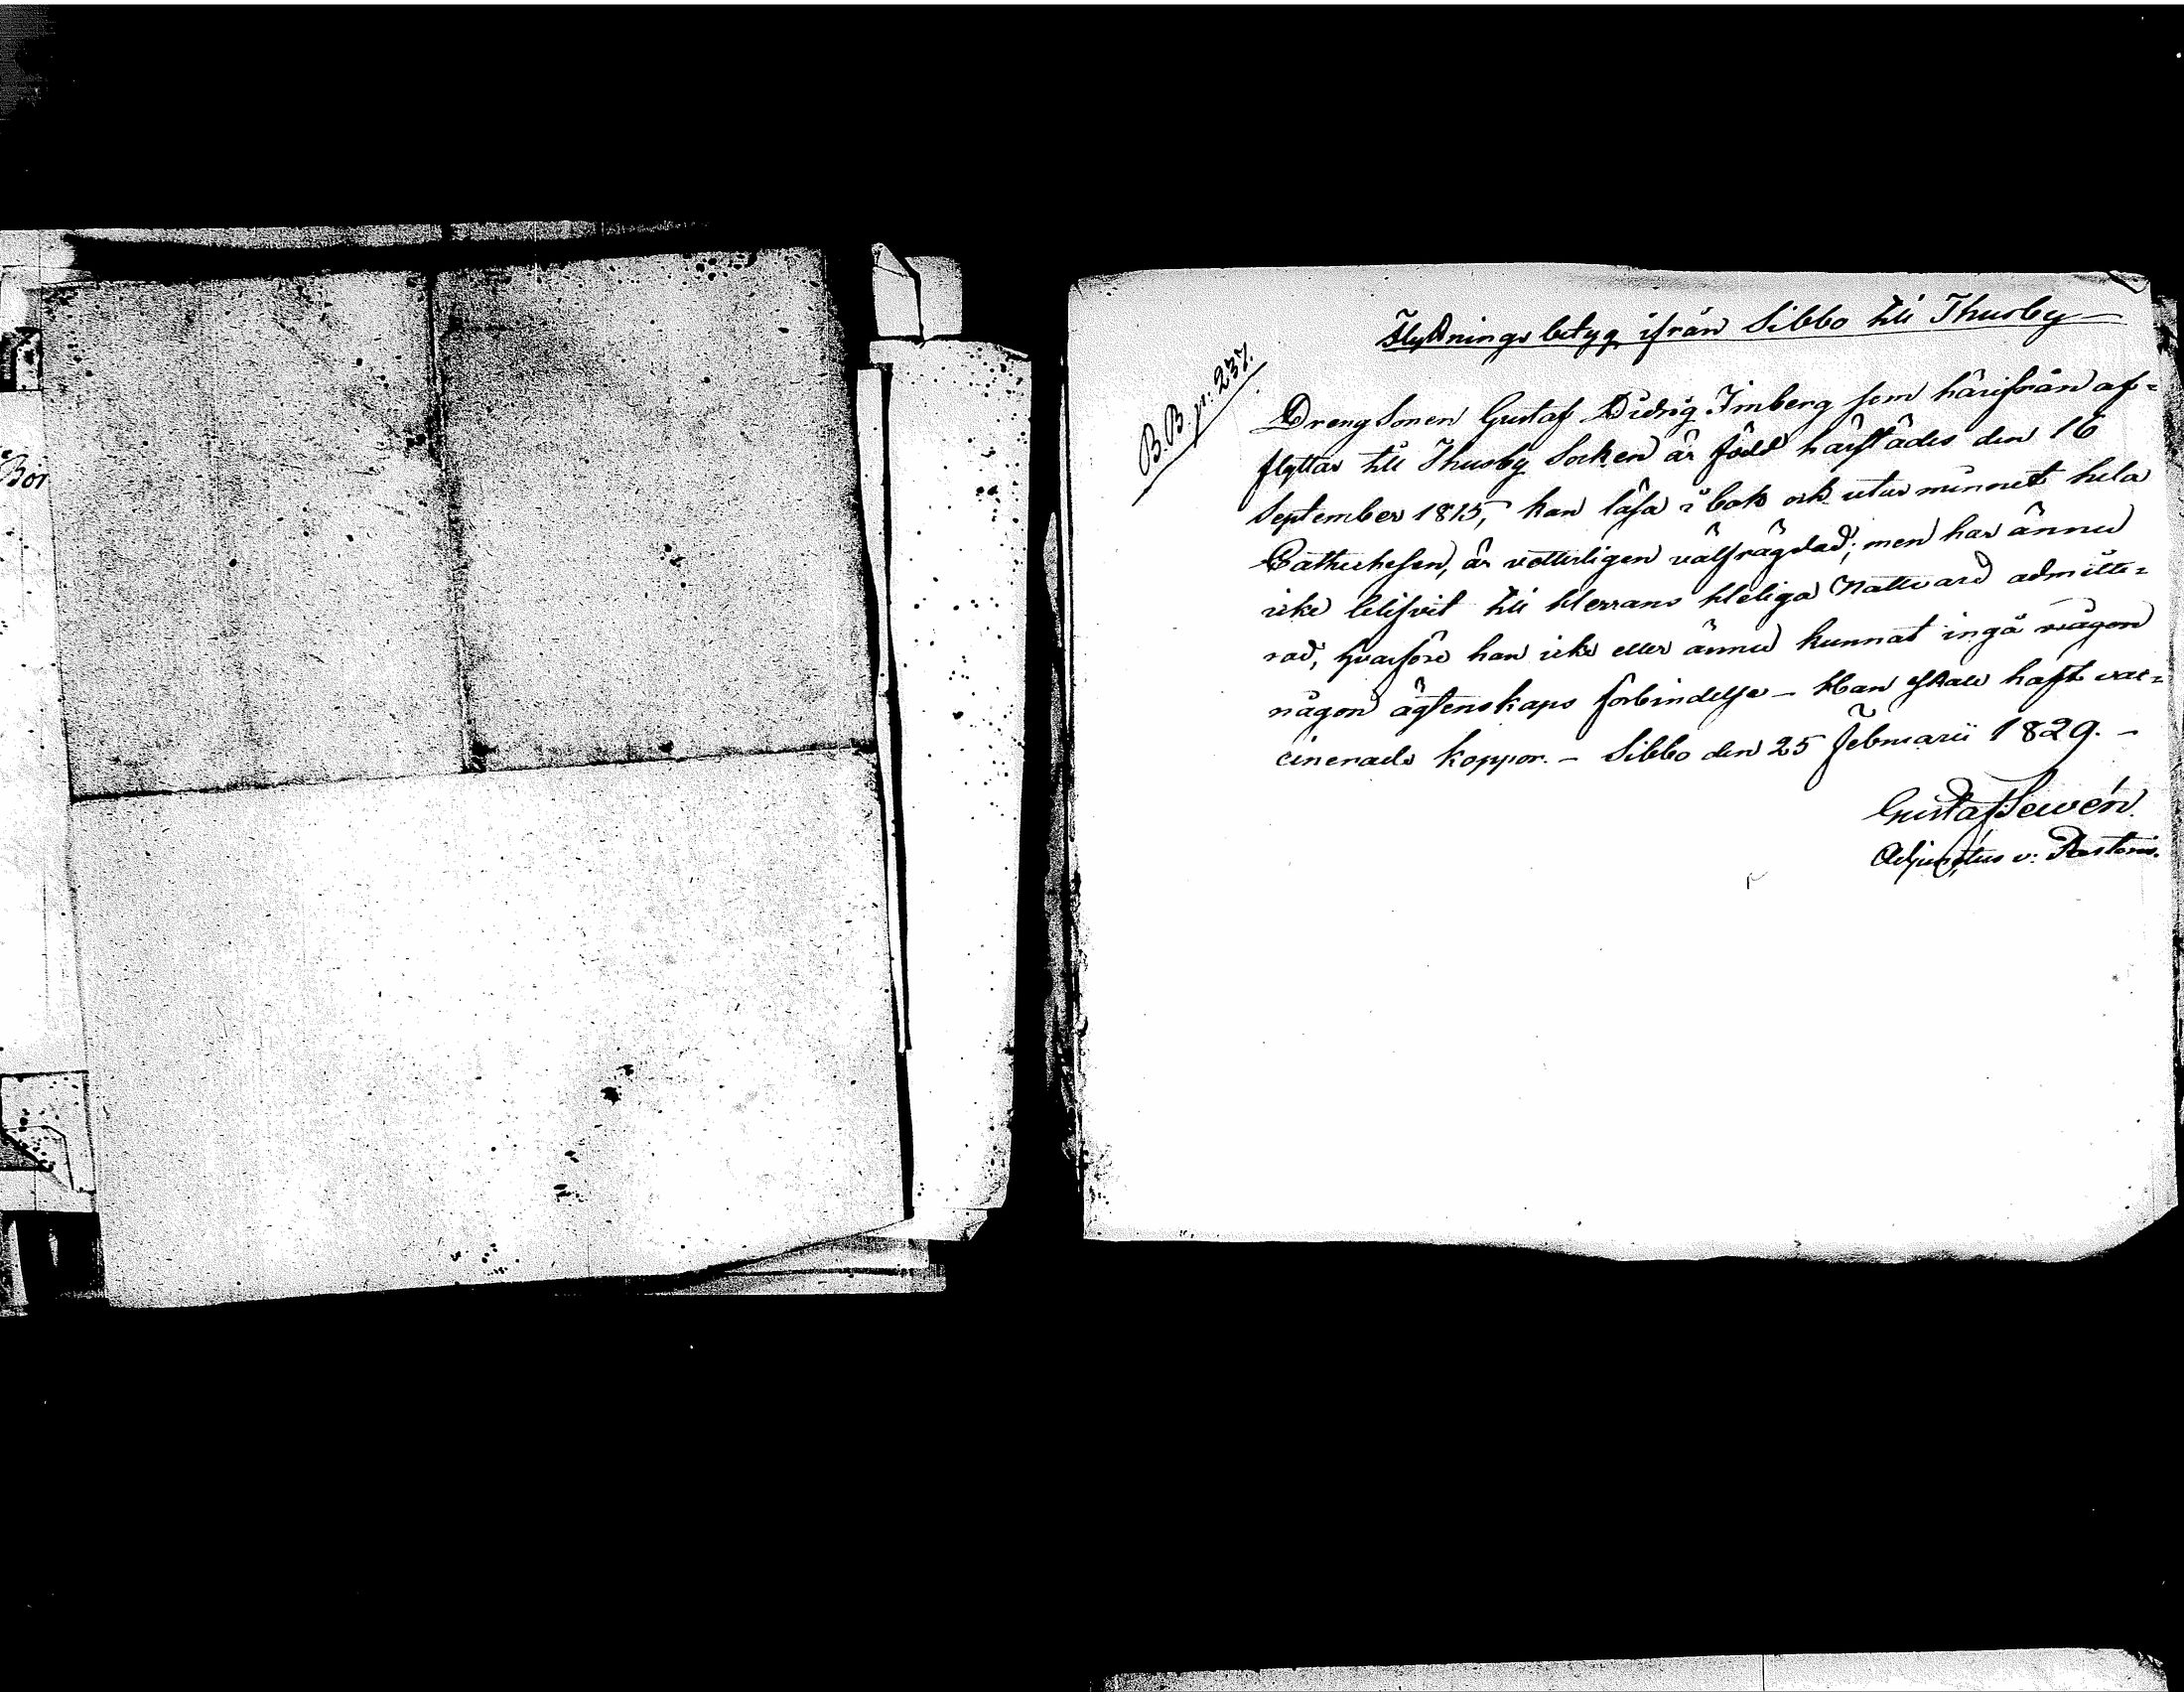 Flyttnings betyg ifrån Sibbo till Thusby
B.B. p. 237.
Dreng Sonen Gustaf Didrig Imberg som härifrån af=
flyttar till Thusby Socken är född härstädes den 16
September 1815, kan läsa i bok och utur minnet hela
Cathechesen, är vetterligen välfrägdad; men har ännu
icke blifvit till Herrans Heliga Nattvard admitte=
rad, hvarföre han icke eller ännu kunnat ingå någon
någon ägtenskaps förbindelse - Han skall haft vac=
cinerade koppor. - Sibbo den 25 Februarii 1829. -
Gustaf
Adjunctus v: Pastoris.